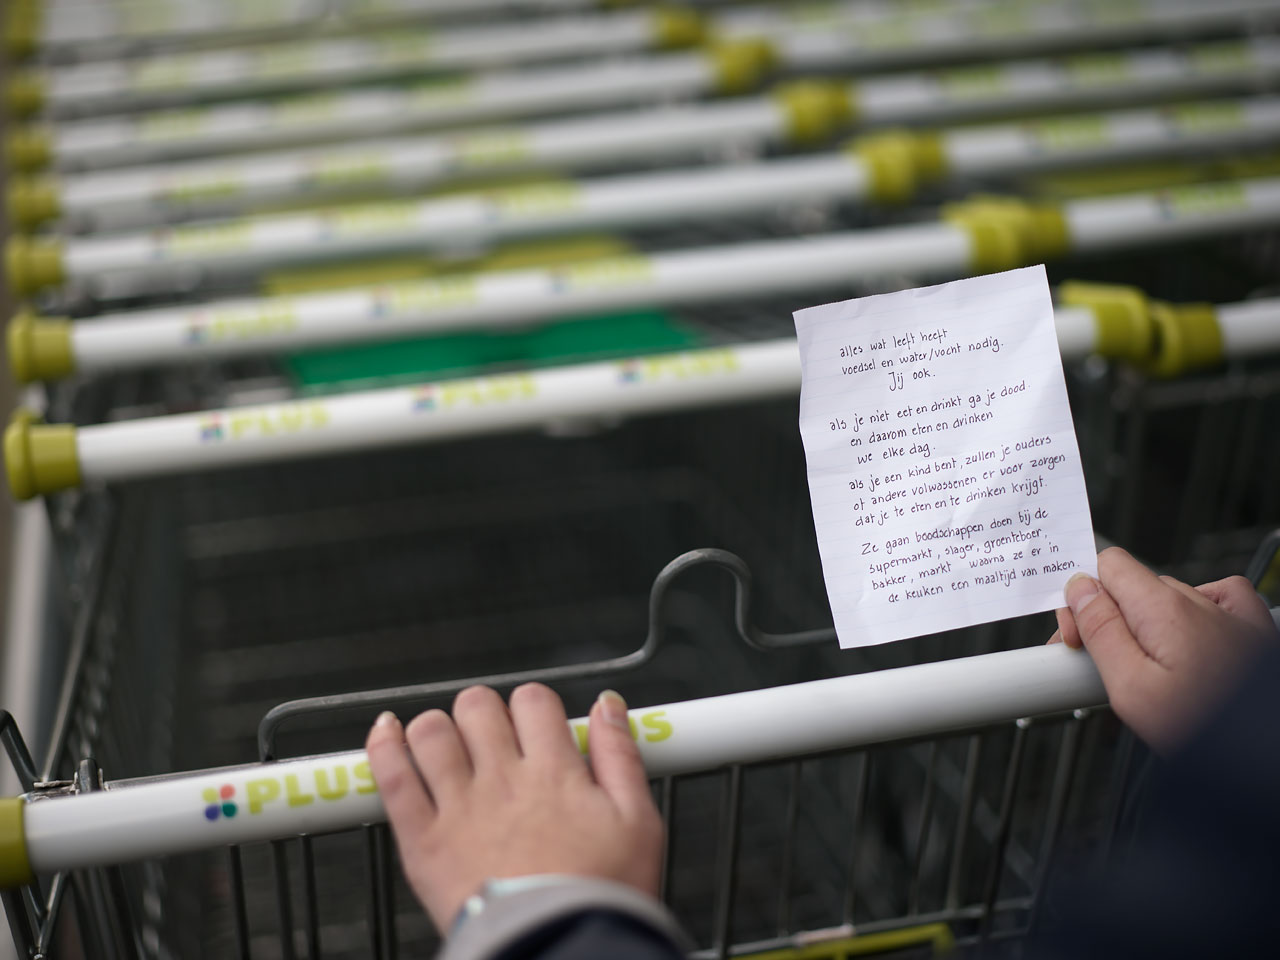 alles wat leeft heeft
voedsel en water/vocht nodig.
Jij ook.
als je niet eet en drinkt ga je dood.
en daarom eten en drinken
we elke dag.
als je een kind bent, zullen je ouders
of andere volwassenen er voor zorgen
dat je te eten en te drinken krijgt.
Ze gaan boodschappen doen bij de
supermarkt, slager, groenteboer,
bakker, markt waarna ze er in
de keuken een maaltijd van maken.
PLUS PLUS PLUS
PLUS